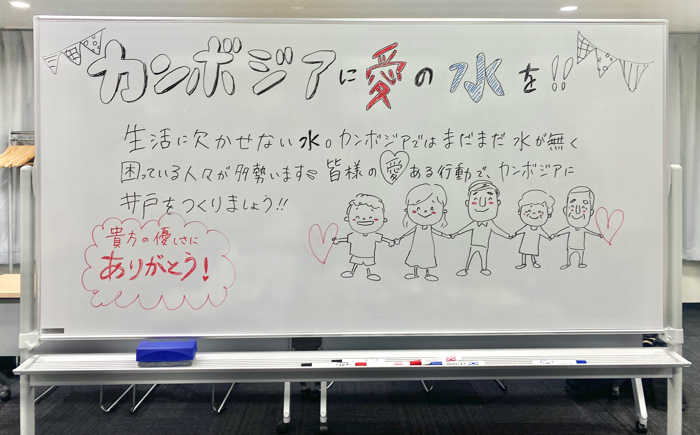 カンボジアに愛の水を!!
生活に欠かせない水。カンボジアではまだまだ水が無く
困っている人々が多勢います。皆様の愛ある行動で、カンボジアに
井戸をつくりましょう!!
貴方の優しさに
ありがとう!